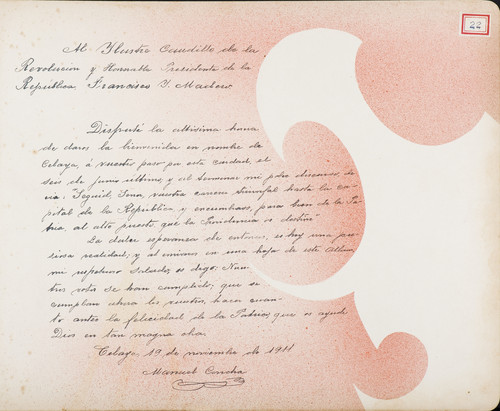 22
Al Ilustre Caudillo de la
Revolucion y Honorable Presidente de la
República Francisco I. Madero
Disfruté la altísima honra
de daros la bienvenida en nombre de
Celaya, á vuestro paso por esta ciudad, el
seis de junio último, y al terminar mi pobre discurso, de-
cía: "Seguid, Señor, vuestra carrera triunfal hasta la ca-
pital de la República y encumbraos, para bien de la Pa-
tria, al alto puesto que la Providencia os destine"
La dulce esperanza de entonces, es hoy una pre-
ciosa realidad; y al enviaros en una hoja de este Álbum,
mi respetuoso saludo, os digo: Nues-
tros votos se han cumplido; que se
cumplan ahora los vuestros, haced cuan-
to antes la felicidad de la Patria, que os ayude
Dios en tan magna obra.
Celaya 19 de noviembre de 1911
Manuel Concha